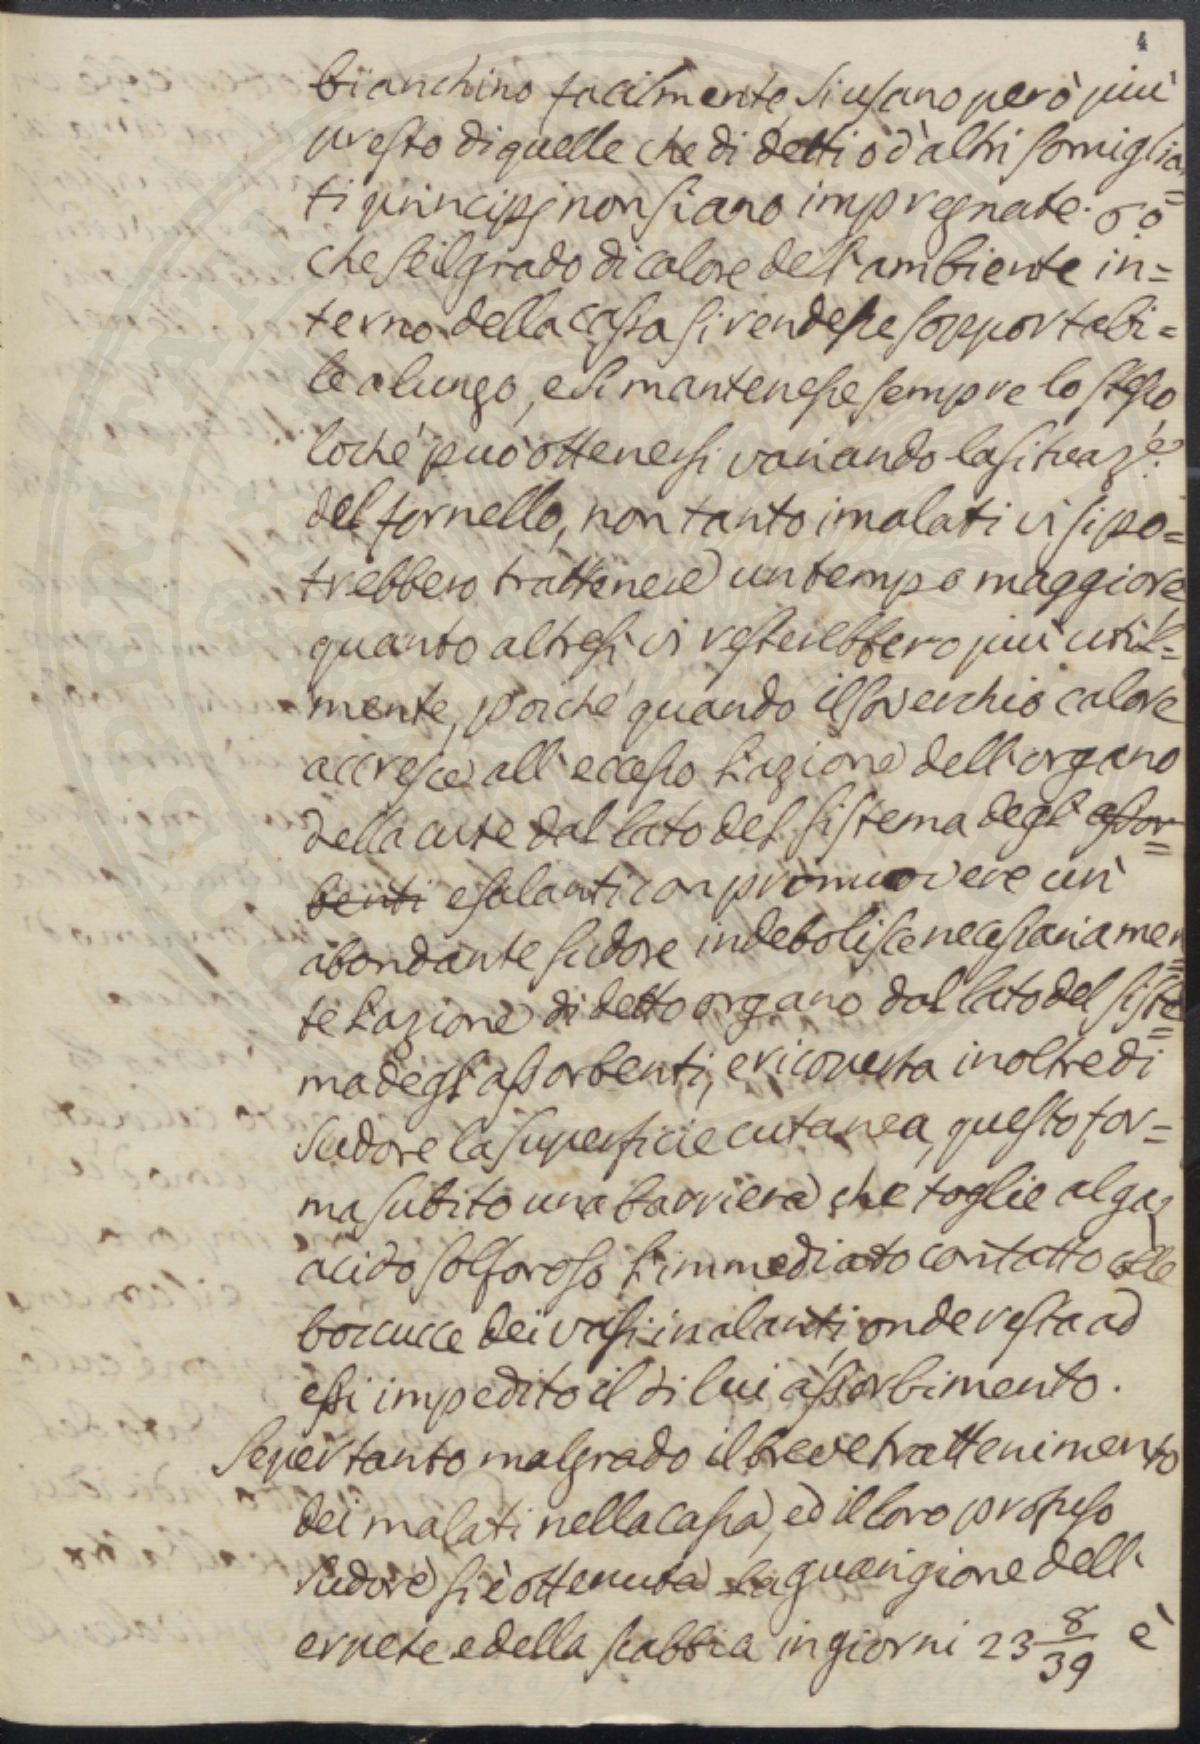 4
bianchino facilmente, si usano però più
presto di quelle che di detti o d'altri somiglian=
ti principj non siano impregnate. 6o
che se il grado di calore dell'ambiente in=
terno della cassa si rendesse sopportabi=
le a lungo, e si mantenesse sempre lo stesso
lochè può ottenersi variando la situaz.e
del fornello, non tanto i malati vi si po=
trebbero trattenere un tempo maggiore
quanto altresì vi resterebbero più util=
mente, poichè quando il soverchio calore
accresce all'eccesso l'azione dell'organo
della cute dal lato del sistema degl'assor=
benti esalanti con promuovere un'
abondante sudore indebolisce necessariamen=
te l'azione di detto organo dal lato del siste=
ma degl'assorbenti, e ricoverta inoltre di
sudore la superficie cutanea, questo for=
ma subito una barriera che toglie al gaz
acido solforoso l'immediato contatto colle
boccucce dei vasi inalanti, onde resta ad
essi impedito il di lui assorbimento.
Se per tanto malgrado il breve trattenimento
dei malati nella cassa, ed il loro profuso
sudore si è ottenuta la guarigione dell'
erpete e della scabbia in giorni 23 8/39 è